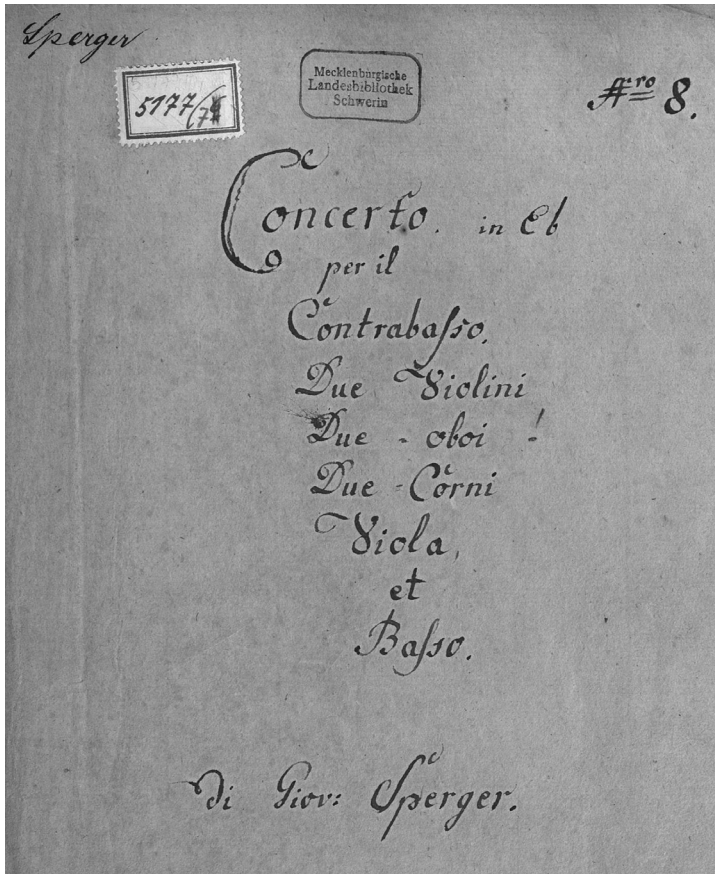 Sperger
5177/7
Mecklenburgische
Landesbibliothek
Schwerin
Nro 8.
Concerto. in Eb
per il
Contrabaſso.
Due Violini
Due - oboi
Due - Corni
Viola,
et
Baſso.
di Giov: Sperger.